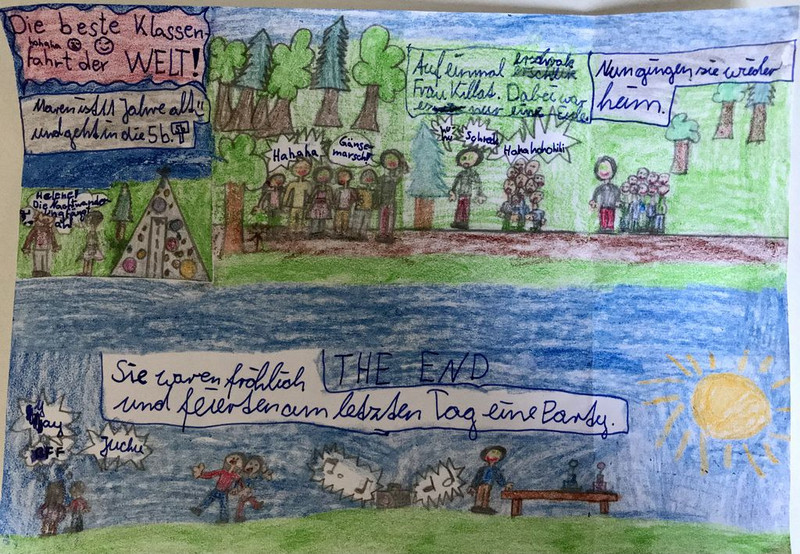 Die beste Klassen-
hahaha
fahrt der WELT!
Maren ist 11 Jahre alt
und geht in die 5b.
Die Nachtwander-
an
Hahaha
Gänse-
marsch!
Auf einmal
Frau Killat. Dabei war
nur eine
Schreck
Hahahohohihi
Nun gingen sie wieder
heim.
Sie waren fröhlich THE END
und feierten am letzten Tag eine Party.
Yay
BFF
Juchu